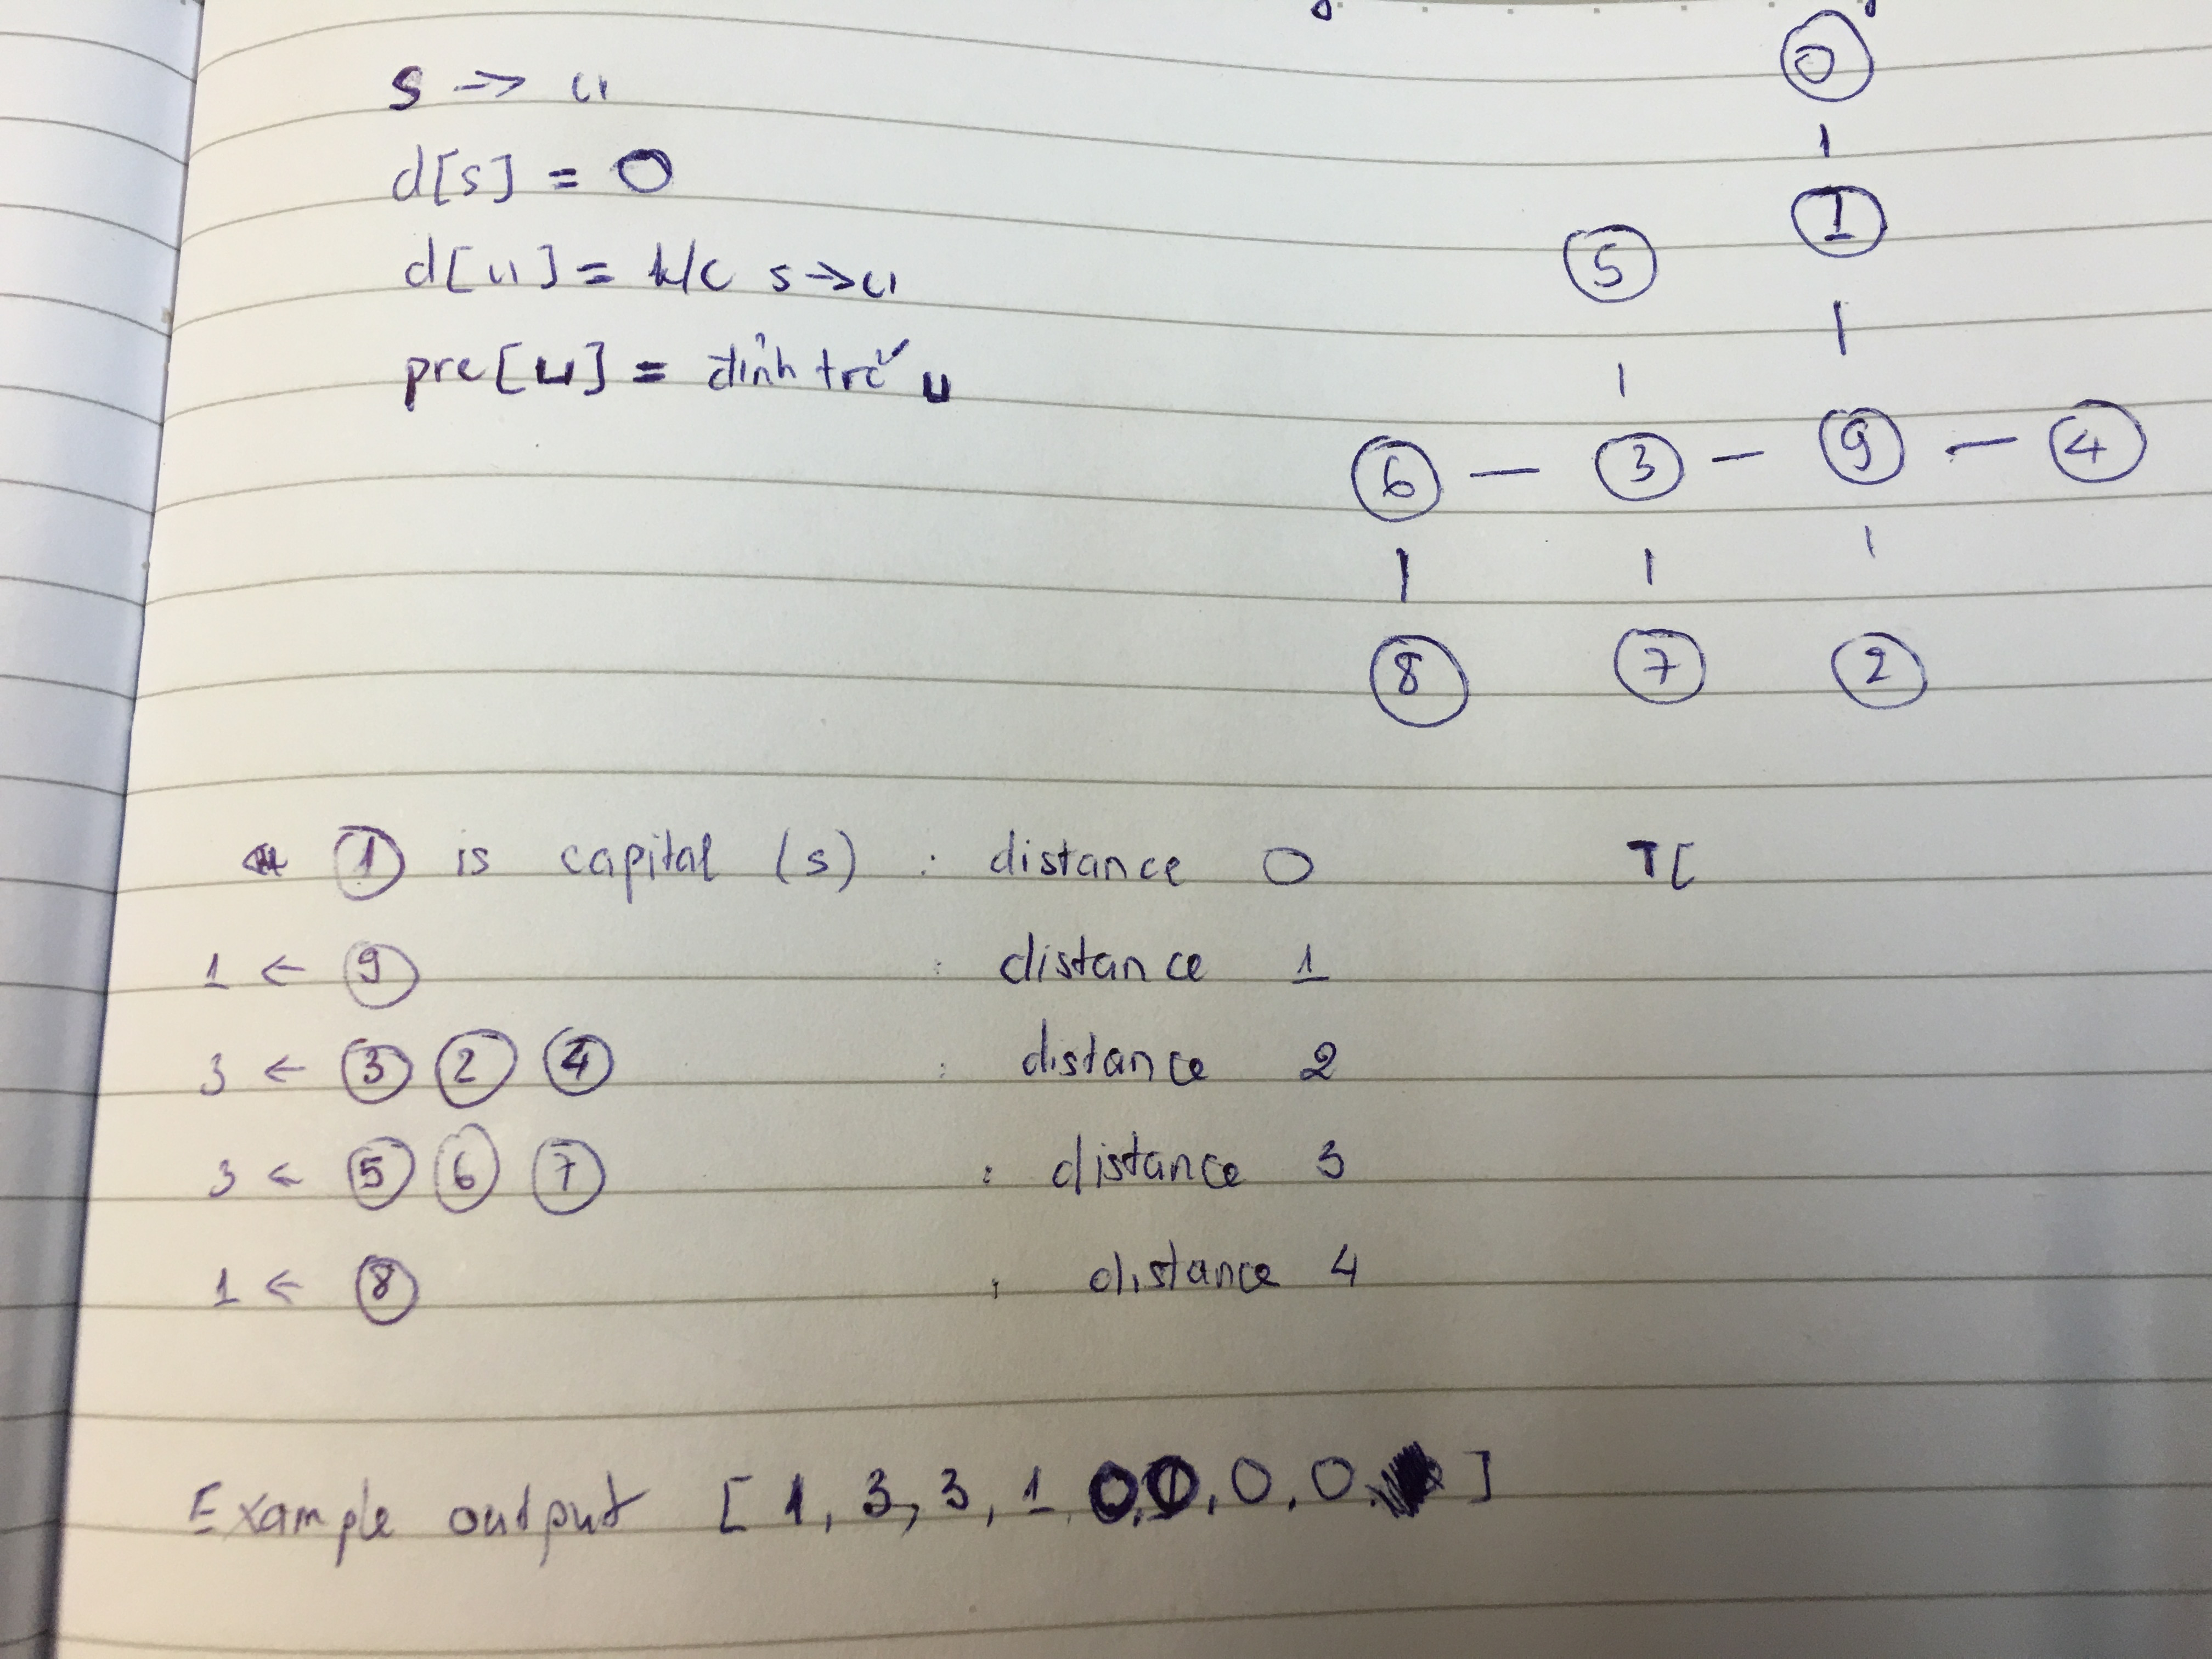 s → u
d[s] = 0
d[u] = k/c s → u
pre[u] = đỉnh trc u
0
1
5
6 — 3 — 9 — 4
8 7 2
1 is capital (s) : distance 0 T[
1 ← 9 : distance 1
3 ← 3 2 4 : distance 2
3 ← 5 6 7 : distance 3
1 ← 8 : distance 4
Example output [ 1, 3, 3, 1, 0, 0, 0, 0. ]